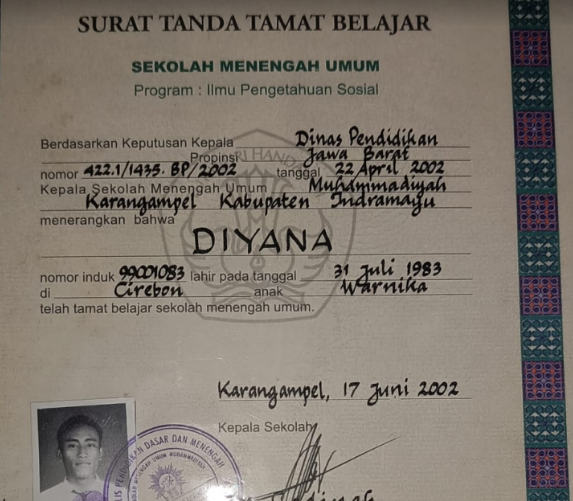 SURAT TANDA TAMAT BELAJAR
SEKOLAH MENENGAH UMUM
Program : Ilmu Pengetahuan Sosial
Berdasarkan Keputusan Kepala Dinas Pendidikan
Propinsi Jawa Barat
nomor 422.1/1435.BP/2002 tanggal 22 April 2002
Kepala Sekolah Menengah Umum Muhammadiyah
Karangampel Kabupaten Indramayu
menerangkan bahwa
DIYANA
nomor induk 99001083 lahir pada tanggal 31 Juli 1983
di Cirebon anak Warnika
telah tamat belajar sekolah menengah umum.
Karangampel, 17 Juni 2002
Kepala Sekolah
PENDIDIKAN DASAR DAN MENENGAH